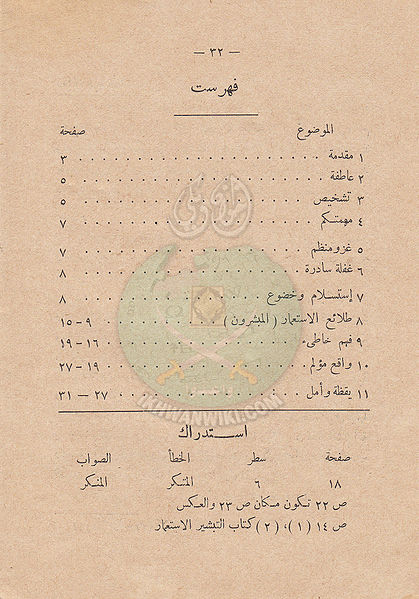 — ٣٢ —
فهرست
الموضوع صفحة
١ مقدمة ٣
٢ عاطفة ٥
٣ تشخيص ٥
٤ مهمتكم ٧
٥ غزو منظم ٧
٦ غفلة سادرة ٨
٧ إستسلام وخضوع ٨
٨ طلائع الاستعمار ( المبشرون ) ٩ - ١٥
٩ فهم خاطىء ١٦ - ١٩
١٠ واقع مؤلم ١٩ - ٢٧
١١ يقظة وأمل ٢٧ - ٣١
IKHWANWIKI.COM
استدراك
صفحة سطر الخطأ الصواب
١٨ ٦ المتكر المنكر
ص ٢٢ تكون مكان ص ٢٣ والعكس
ص ١٤ (١) ، (٢) كتاب التبشير الاستعمار